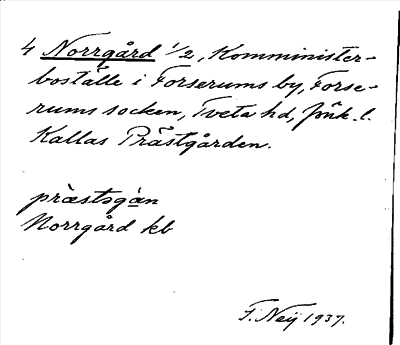 4 Norrgård 1/2, Komminister-
boställe i Forserums by, Forse-
rums socken, Tveta hd, Jönk. l.
Kallas Prästgården.
præstsgàn
Norrgård kb
F. Neij 1937.